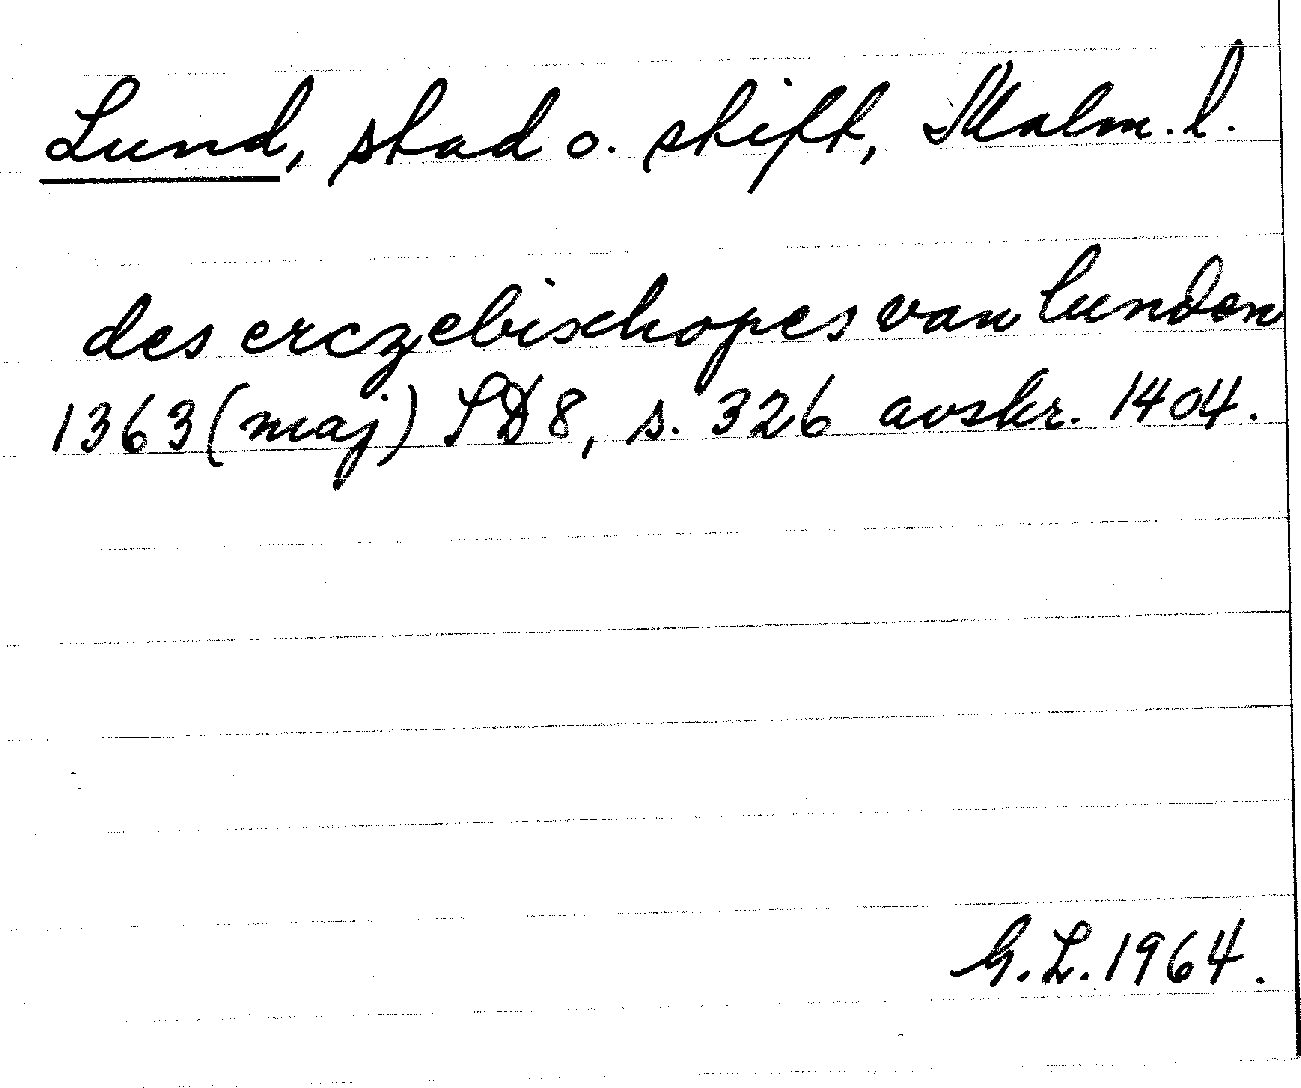 Lund, stad o. stift, Malm. l.
des erczebischopes van lunden
1363 (maj) SD8, s. 326 avskr. 1404.
G.L. 1964.